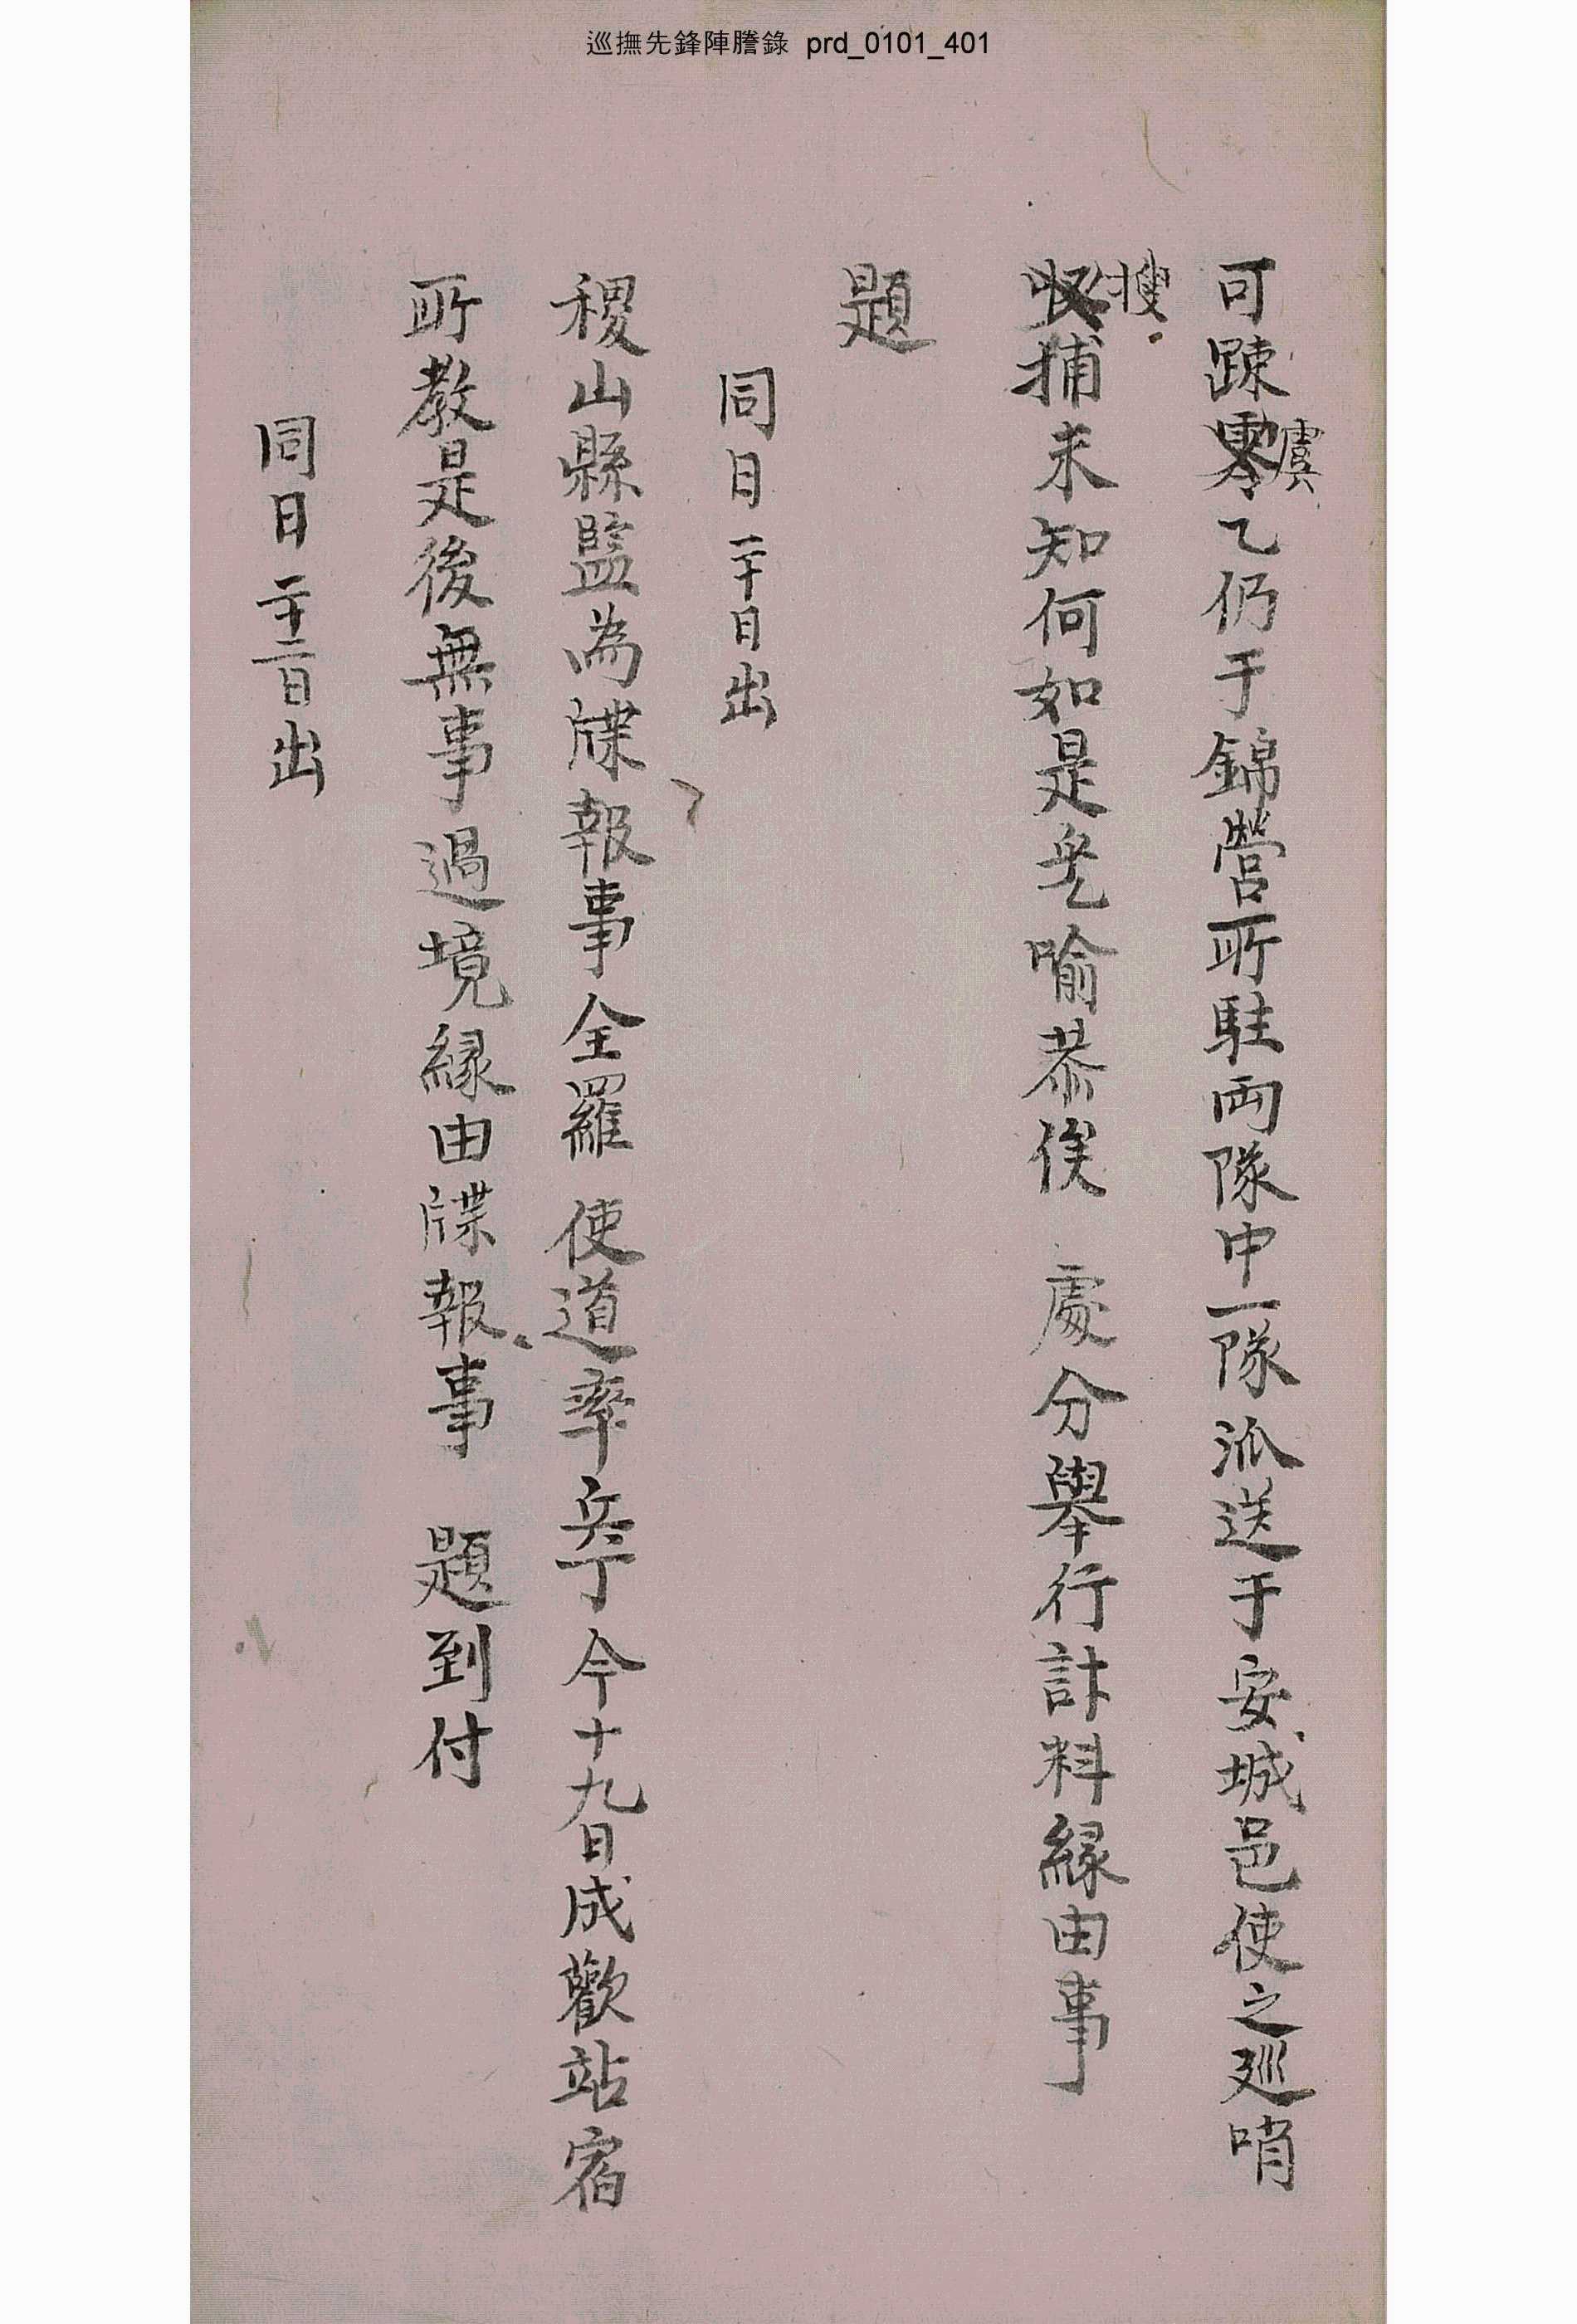 巡撫先鋒陣謄錄 prd_0101_401
可踈虞乙仍于錦營所駐兩隊中一隊派送于安城邑使之廵哨
搜捕未知何如是乎喩恭俟 處分擧行計料緣由事
題
同日二十日出
稷山縣監為牒報事全羅 使道率兵丁今十九日成歡站宿
所敎是後無事過境緣由牒報事 題到付
同日二十二日出